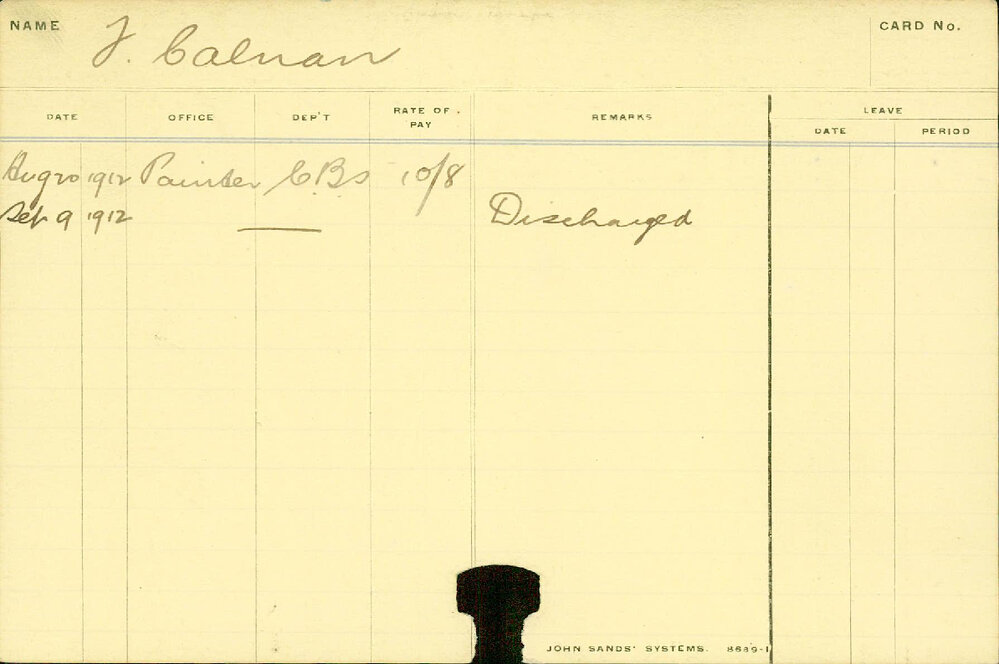 NAME J. Calnan CARD No.
DATE OFFICE DEP'T RATE OF PAY REMARKS LEAVE
DATE PERIOD
Aug 20 1912 Painter C.Bs 10/8
Sep 9 1912 — Discharged
JOHN SANDS' SYSTEMS. 8689-1